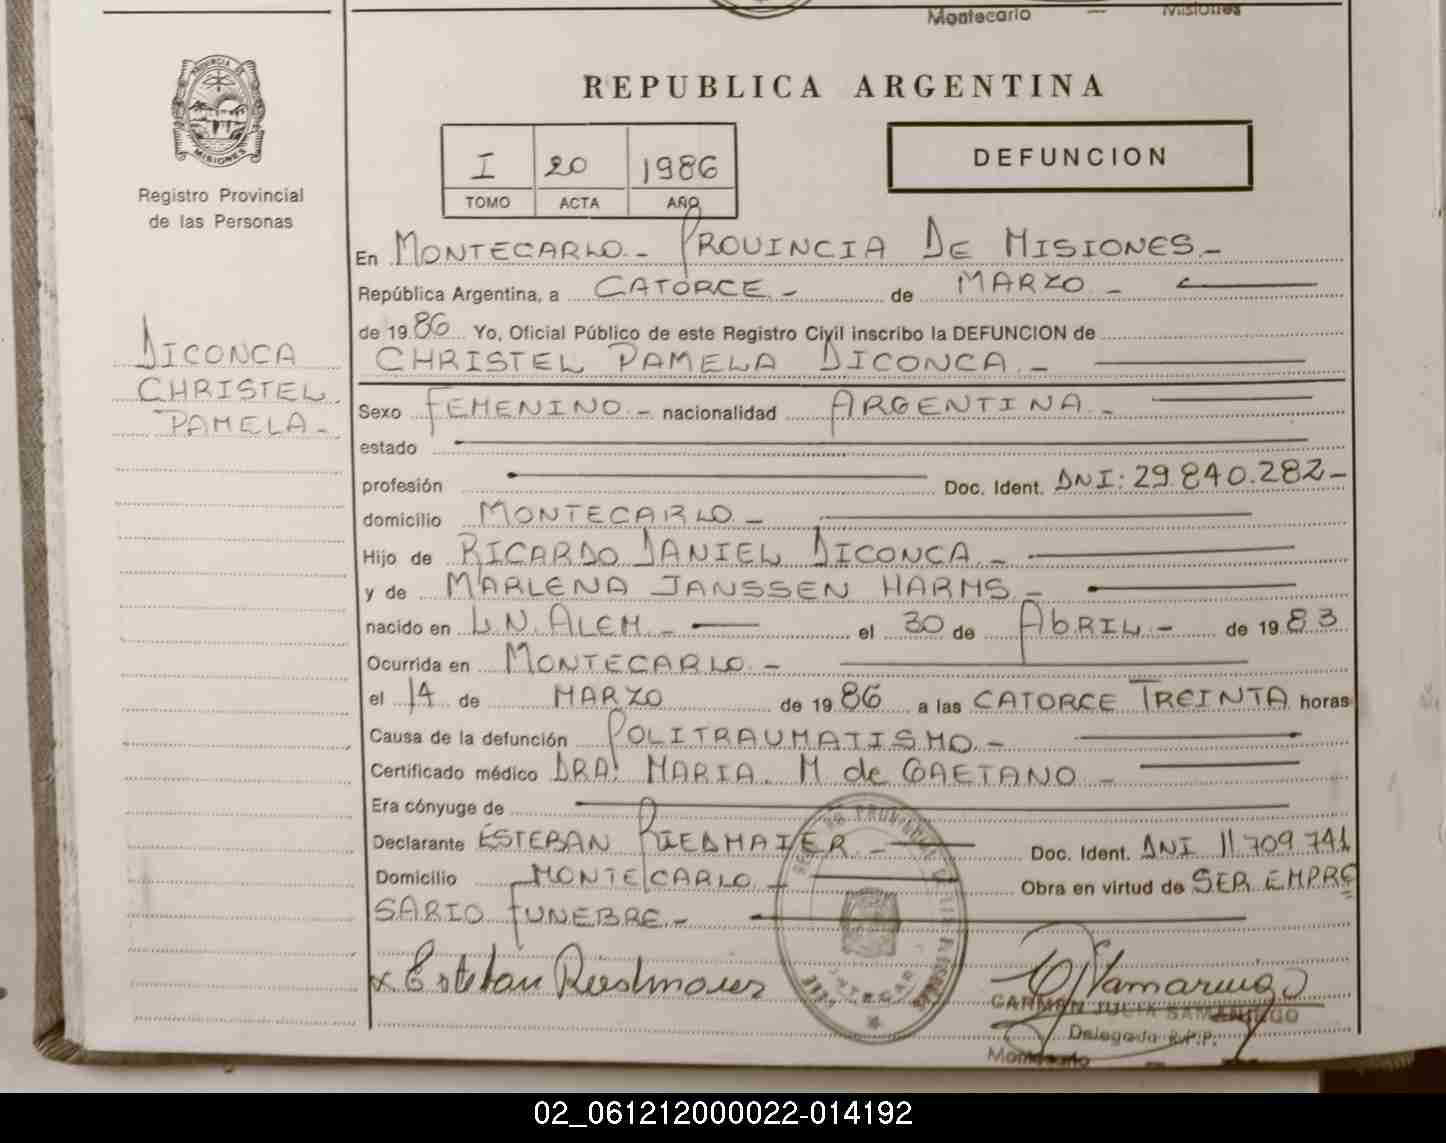 Montecarlo — Misiones
REPUBLICA ARGENTINA
PROVINCIA DE
MISIONES
Registro Provincial
de las Personas
I 20 1986
TOMO ACTA AÑO
DEFUNCION
DICONCA
CHRISTEL
PAMELA-
En MONTECARLO.- PROVINCIA DE MISIONES.-
República Argentina, a CATORCE.- de MARZO.-
de 1986 Yo, Oficial Público de este Registro Civil inscribo la DEFUNCION de
CHRISTEL PAMELA DICONCA.-
Sexo FEMENINO.- nacionalidad ARGENTINA.-
estado
profesión Doc. Ident. DNI: 29.840.282-
domicilio MONTECARLO.-
Hijo de RICARDO DANIEL DICONCA.-
y de MARLENA JANSSEN HARMS.-
nacido en L.N. ALEM.- el 30 de AbRIL.- de 1983
Ocurrida en MONTECARLO.-
el 14 de MARZO de 1986 a las CATORCE TREINTA horas
Causa de la defunción POLITRAUMATISMO.-
Certificado médico DRA: MARIA. M de GAETANO.-
Era cónyuge de
Declarante ESTEBAN RIEDMAIER.- Doc. Ident. DNI 11.709.741
Domicilio MONTECARLO.- Obra en virtud de SER EMPRE
SARIO FUNEBRE.-
x Esteban Riedmaier
CARMEN JULIA SAMANIEGO
Delegada R.P.P.
Montecarlo
02_061212000022-014192